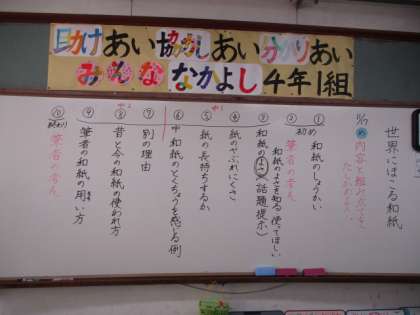 助けあい 協力しあい 分かりあい
みんな なかよし 4年1組
世界にほこる和紙
め 内容と組み立てを
初め
① 和紙のしょうかい
② 筆者の考え
和紙のよさを知る 使ってほしい
③ 和紙のよさ(話題提示)
④ 紙のやぶれにくさ
中1
⑤ 紙の長持ちするか
中 ⑥ 和紙のとくちょうを感じる例
⑦ 別の理由
中2
⑧ 昔と今の和紙の使われ方
⑨ 筆者の和紙の用い方
終わり
⑩ 筆者の考え